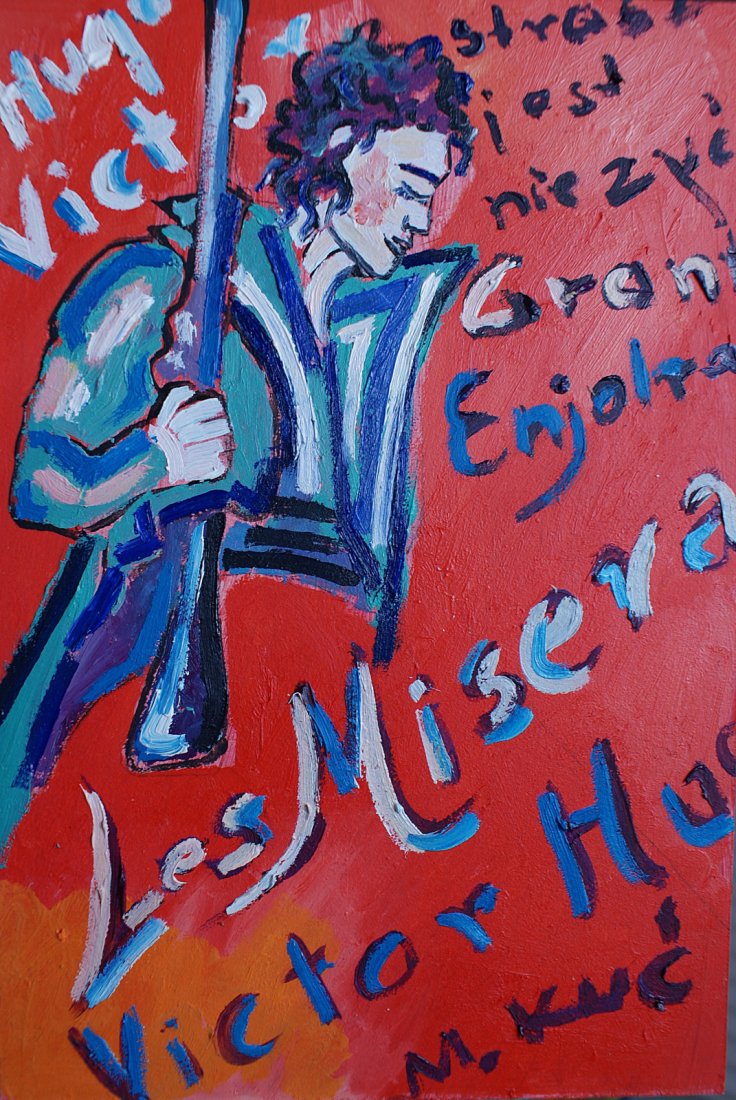 Hugo
Victor
stras
jest
nie żyć
Grant
Enjolra
Les Misera
Victor Hug
M. Kuć